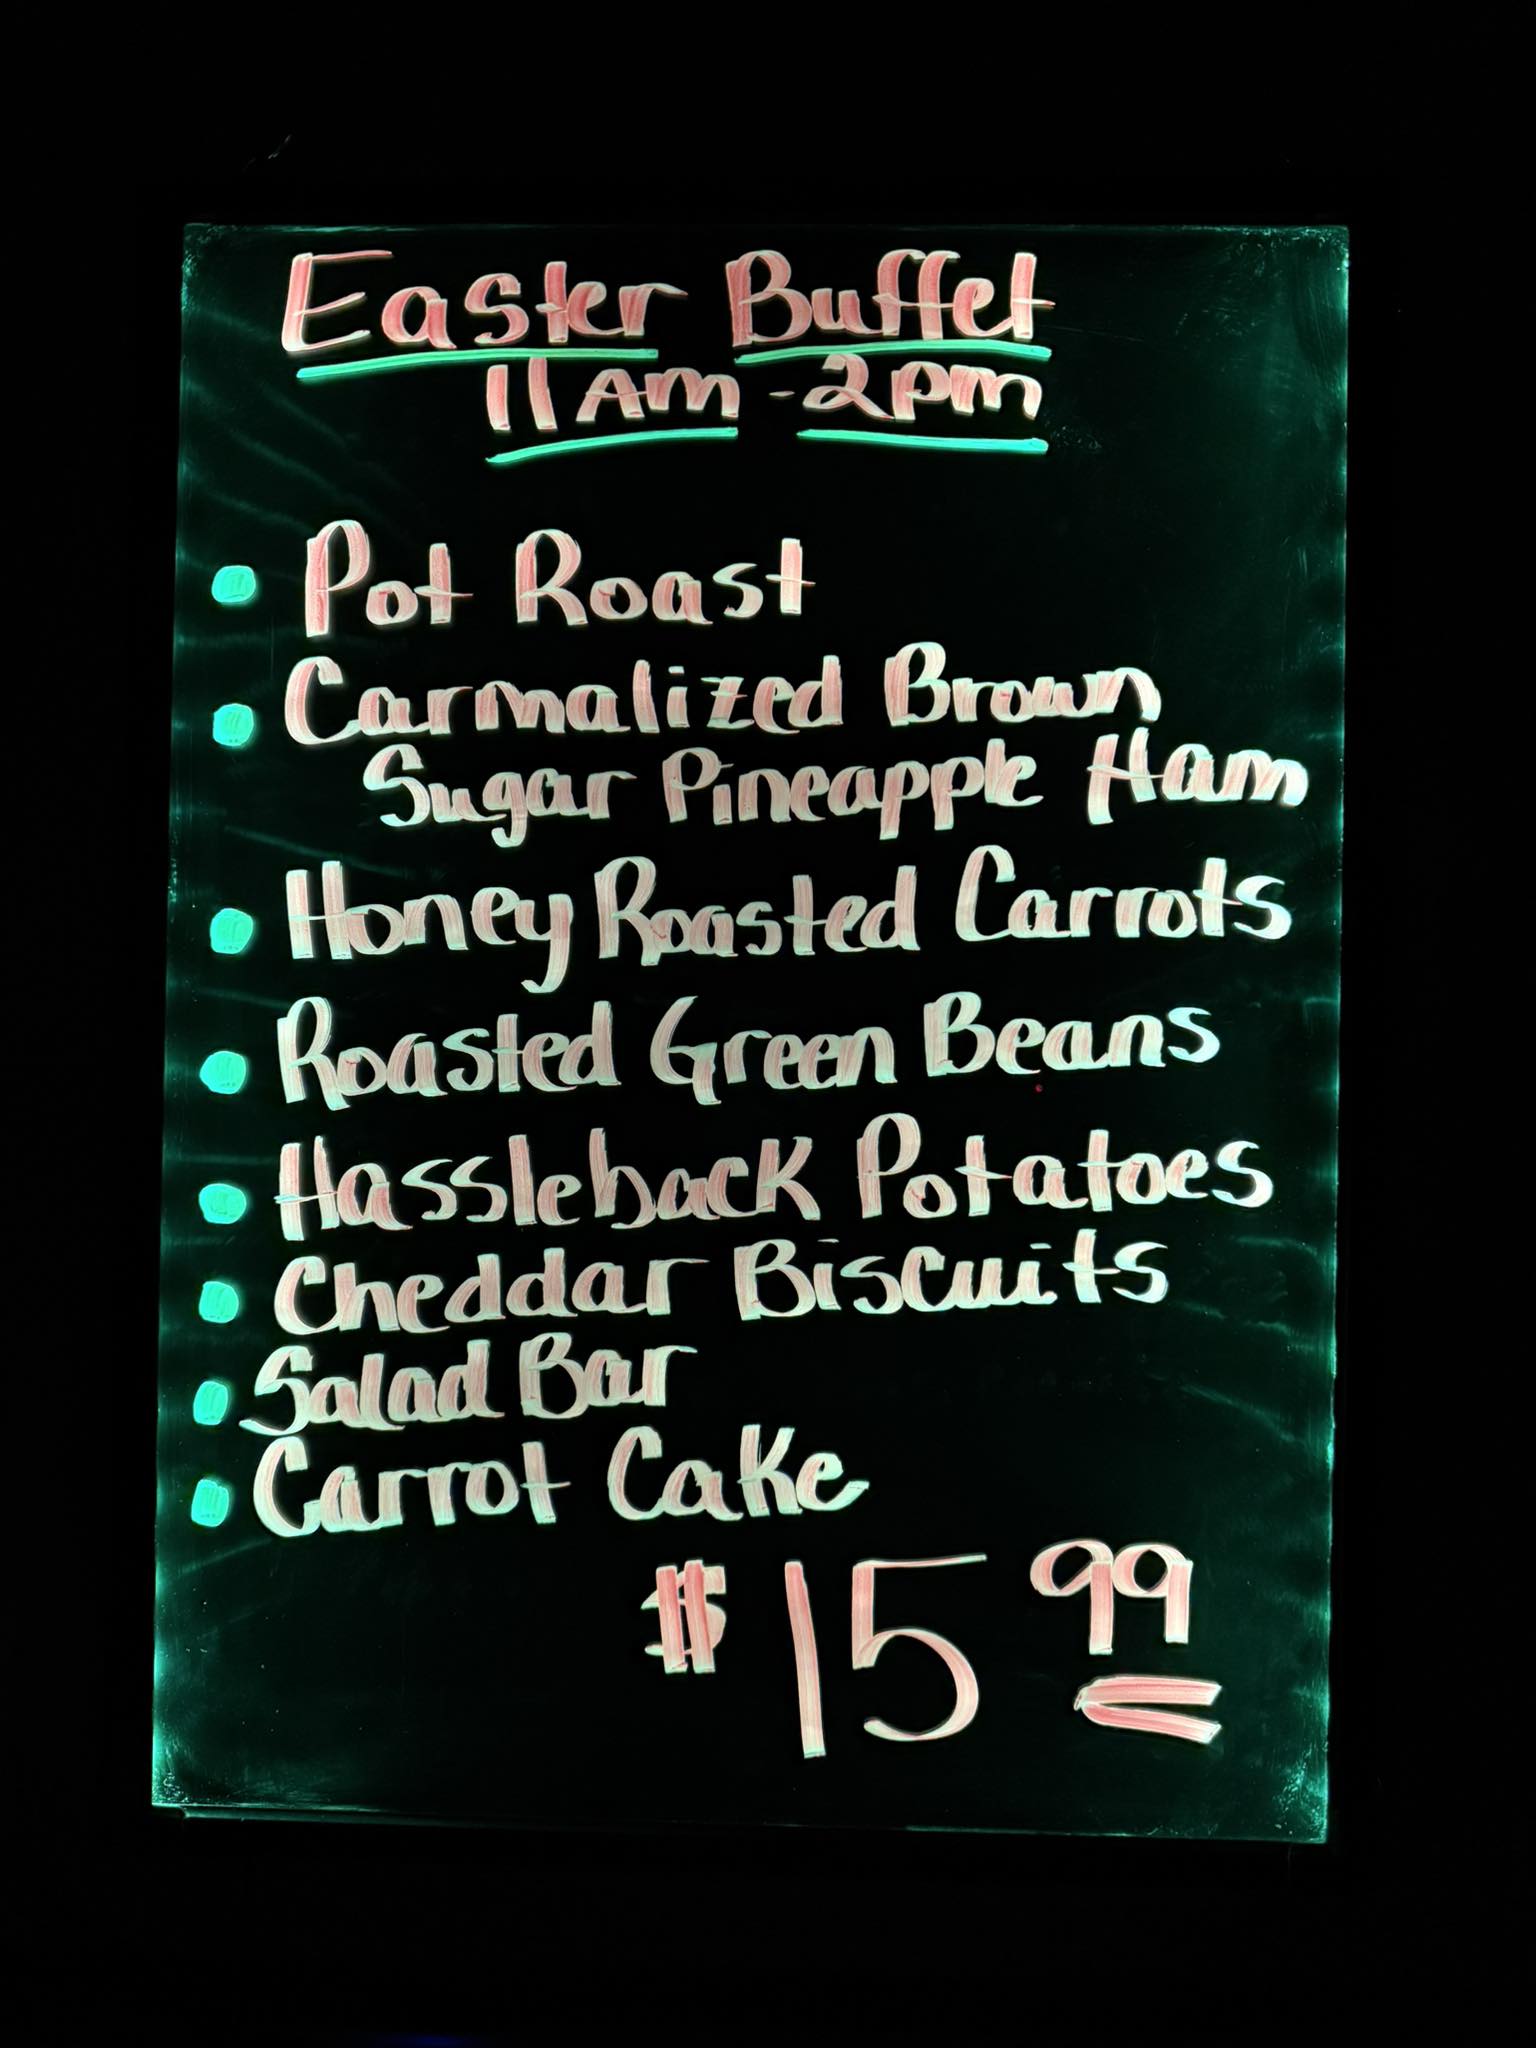 Easter Buffet
11 Am - 2pm
• Pot Roast
• Carmalized Brown
Sugar Pineapple Ham
• Honey Roasted Carrots
• Roasted Green Beans
• Hassleback Potatoes
• Cheddar Biscuits
• Salad Bar
• Carrot Cake
$15 99